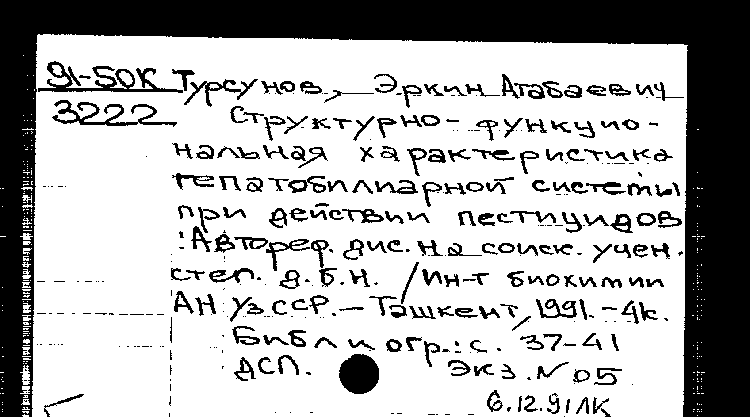 91-50К Турсунов, Эркин Атабаевич
3222 Структурно-функцио-
нальная характеристика
гепатобилиарной системы
при действии пестицидов
: Автореф. дис. на соиск. учен.
степ. д.б.н. / Ин-т биохимии
АН УзССР. – Ташкент, 1991. – 41с.
Библиогр.: с. 37-41
ДСП. Экз. № 05
6.12.91 ЛК